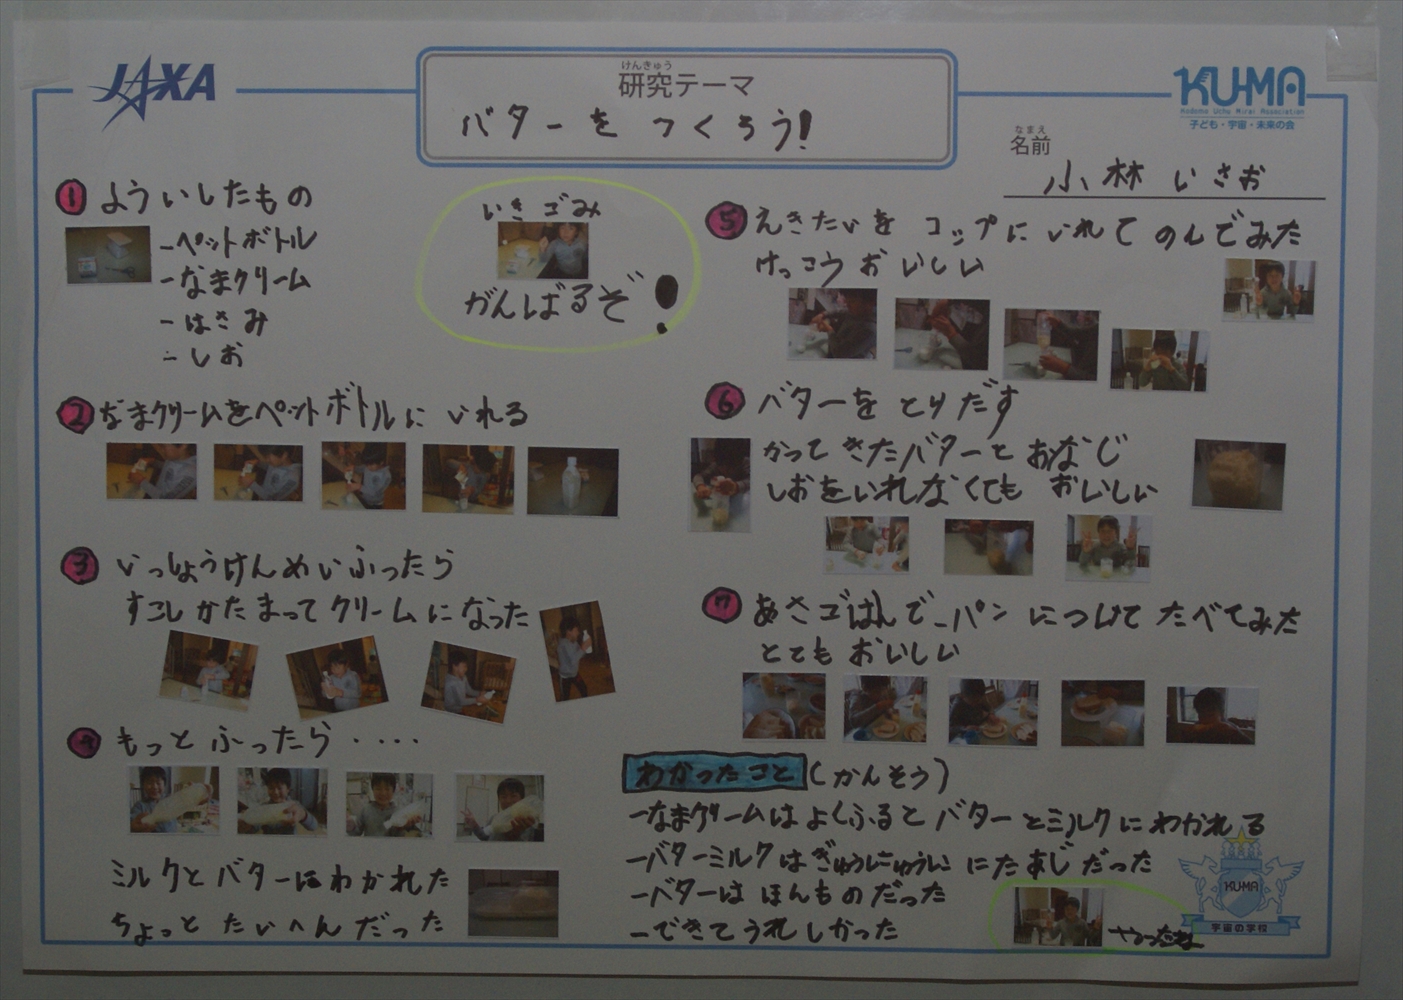 JAXA
けんきゅう
研究テーマ
バターをつくろう!
KU-MA
Kodomo Uchu Mirai Association
子ども・宇宙・未来の会
なまえ
名前
小林 いさお
1 よういしたもの
-ペットボトル
-なまクリーム
-はさみ
-しお
いきごみ
がんばるぞ!
2 なまクリームをペットボトルにいれる
3 いっしょうけんめいふったら
すこしかたまってクリームになった
4 もっとふったら・・・・
ミルクとバターにわかれた
ちょっとたいへんだった
5 えきたいをコップにいれてのんでみた
けっこうおいしい
6 バターをとりだす
かってきたバターとおなじ
しおをいれなくてもおいしい
7 あさごはんで-パンにつけてたべてみた
とてもおいしい
わかったこと(かんそう)
-なまクリームはよくふるとバターとミルクにわかれる
-バターミルクはぎゅうにゅうににたあじだった
-バターはほんものだった
-できてうれしかった
KUMA
宇宙の学校